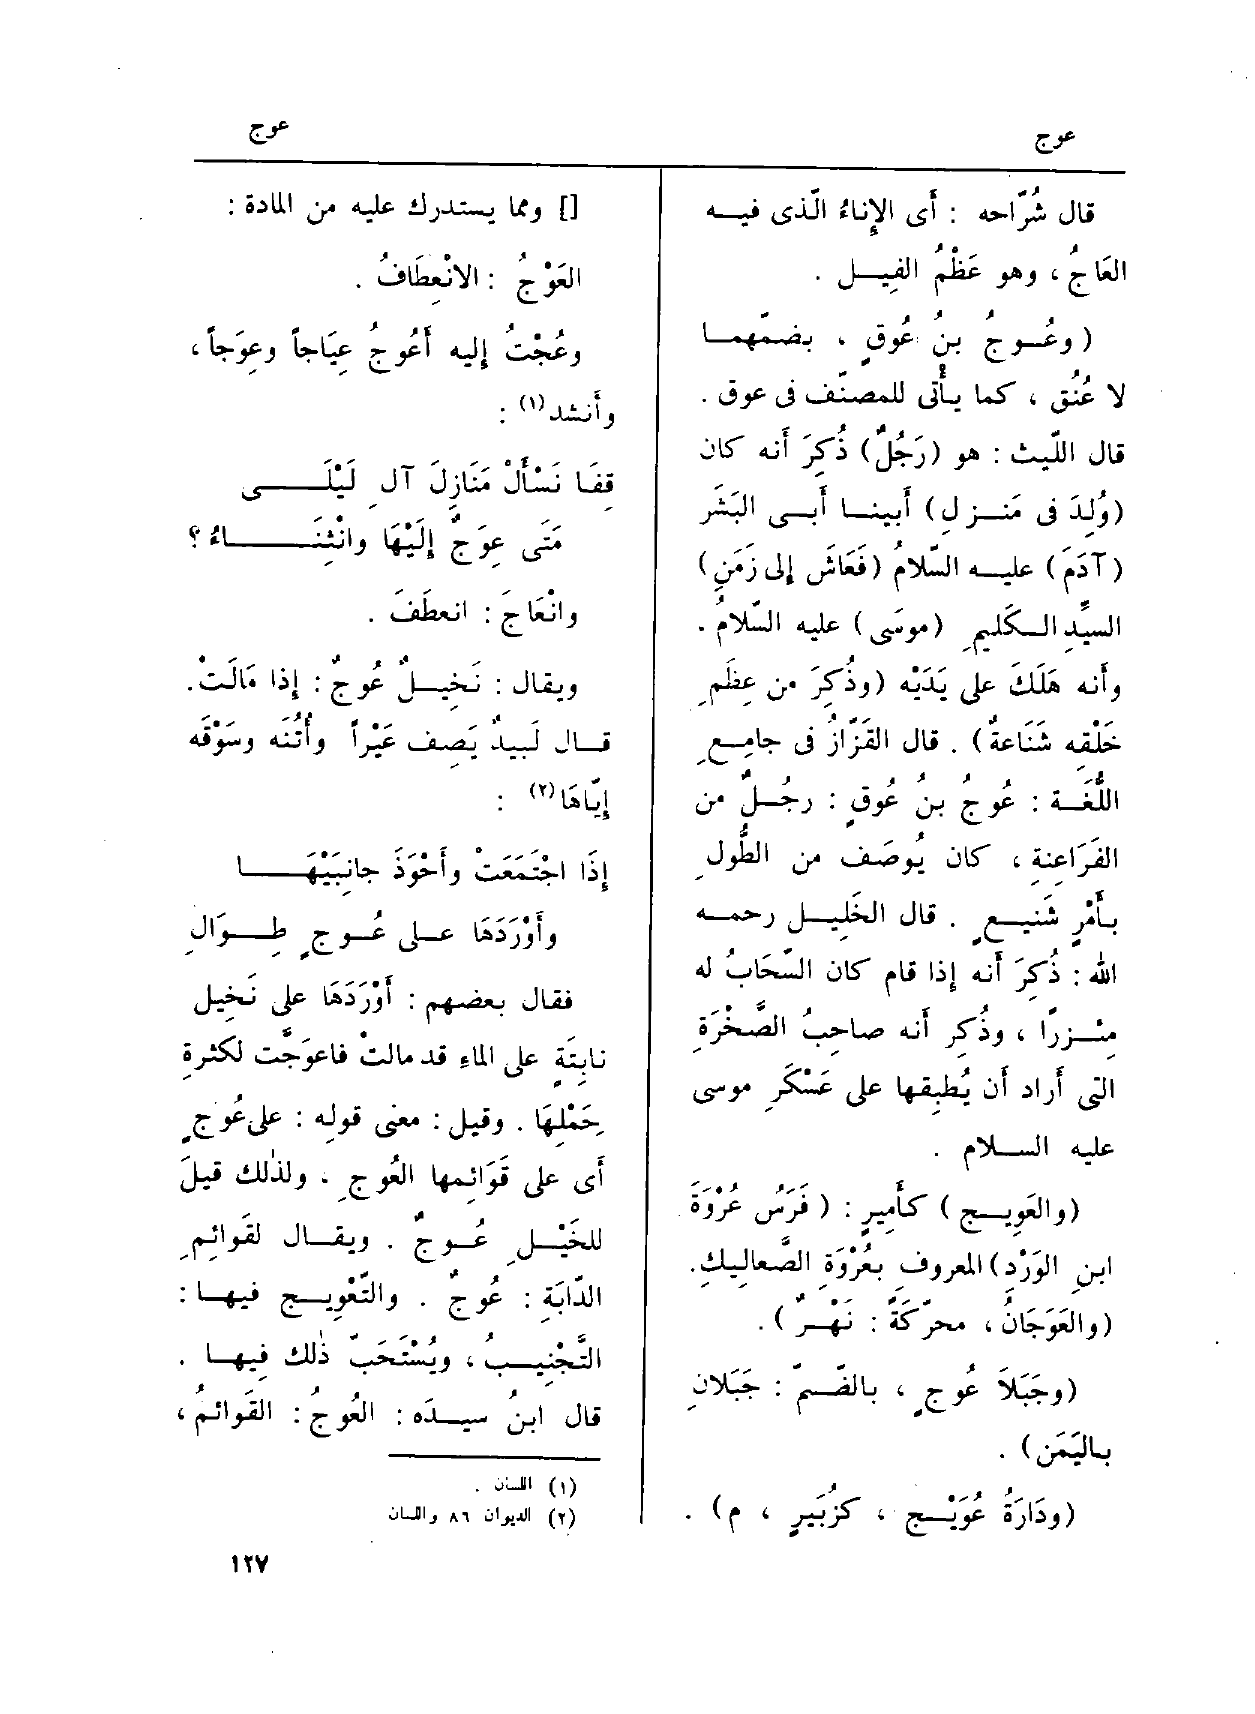 عوج
عوج
قال شُرّاحه : أَى الإِناءُ الّذى فيه
العَاجُ ، وهو عَظْمُ الفِيل .
(وعُوجُ بنُ عُوقٍ ، بضمّهما
لا عُنُق ، كما يأْتى للمصنّف فى عوق .
قال اللّيث : هو (رَجُلٌ) ذُكِرَ أَنه كان
(وُلِدَ فى مَنزل) أَبينا أَبى البَشَر
(آدَمَ) عليه السّلامُ (فَعَاشَ إِلى زَمَنِ)
السيِّد الكَلِيمِ (موسَى) عليه السّلامُ .
وأَنه هَلَكَ على يَدَيْه (وذُكِرَ من عِظَمِ
خَلْقِه شَنَاعةٌ) . قال القَزّازُ فى جامِعِ
اللُّغَة : عُوجُ بنُ عُوقٍ : رجُلٌ من
الفَرَاعِنةِ ، كان يُوصَف من الطُّولِ
بأَمْرٍ شَنيعٍ . قال الخَلِيل رحمه
الله : ذُكِرَ أَنه إِذا قام كان السّحَابُ له
مِئزرًا ، وذُكِر أَنه صاحبُ الصَّخْرَةِ
التى أَراد أَن يُطبِقها على عَسْكَرِ موسى
عليه السلام .
(والعَوِيج) كأَمِيرٍ : (فَرَسُ عُرْوَةَ
ابنِ الوَرْدِ) المعروفِ بعُرْوَةِ الصَّعاليكِ .
(والعَوَجَانُ ، محرّكَةً : نَهْرٌ) .
(وجَبَلاَ عُوجٍ ، بالضّمّ : جَبَلانِ
باليَمَن) .
(ودَارَةُ عُوَيْج ، كزُبَيرٍ ، م) .
[] ومما يستدرك عليه من المادة :
العَوْجُ : الانْعِطَافُ .
وعُجْتُ إِليه أَعُوجُ عِيَاجاً وعِوَجاً ،
وأَنشد(١) :
قِفَا نَسْأَلْ مَنَازِلَ آلِ لَيْلَى
مَتَى عِوَجٌ إِلَيْهَا وانْثِنَاءُ ؟
وانْعَاجَ : انعطَفَ .
ويقال : نَخِيلٌ عُوجٌ : إِذا مَالَتْ .
قال لَبِيدٌ يَصِف عَيْراً وأُتُنَه وسَوْقَه
إِيّاهَا(٢) :
إِذَا اجْتَمَعَتْ وأَحْوَذَ جانِبَيْهَا
وأَوْرَدَهَا على عُوجٍ طِوَالِ
فقال بعضهم : أَوْرَدَهَا على نَخِيل
نابِتَةٍ على الماءِ قد مالتْ فاعوَجَّت لكثرةِ
حَمْلِهَا . وقيل : معنى قوله : على عُوجٍ
أَى على قَوَائمها العُوجِ ، ولذٰلك قيلَ
للخَيْلِ عُوجٌ . ويقال لقَوائمِ
الدّابَةِ : عُوجٌ . والتّعْوِيج فيها :
التَّجْنِيبُ ، ويُسْتَحَبّ ذٰلك فِيها .
قال ابنُ سيدَه : العُوجُ : القَوائمُ ،
(١) اللسان .
(٢) الديوان ٨٦ واللسان
١٢٧